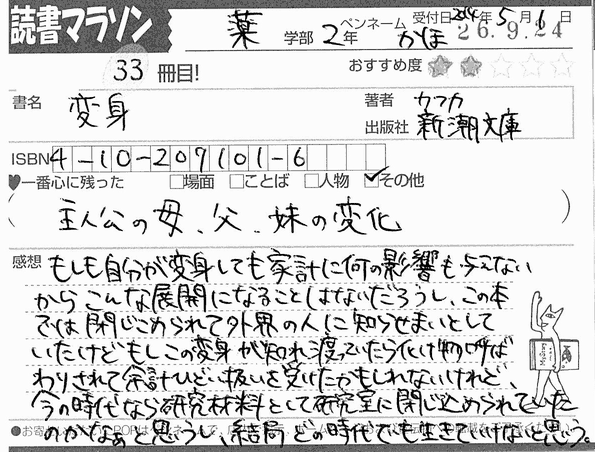 読書マラソン
薬 学部 2年 ペンネーム かほ 受付日 2014年5月6日
26.9.24
33 冊目!
おすすめ度 ★★☆☆☆
書名 変身
著者 カフカ
出版社 新潮文庫
ISBN 4-10-207101-6
♥一番心に残った □場面 □ことば □人物 ☑その他
(主人公の母、父、妹の変化)
感想 もしも自分が変身しても家計に何の影響も与えない
からこんな展開になることはないだろうし、この本
では閉じこめられて外界の人に知らせまいとして
いたけどもしこの変身が知れ渡っていたら化け物呼ば
わりされて余計ひどい扱いを受けたかもしれないけれど、
今の時代なら研究材料として研究室に閉じ込められていた
のかなぁと思うし、結局どの時代でも生きていけないと思う。